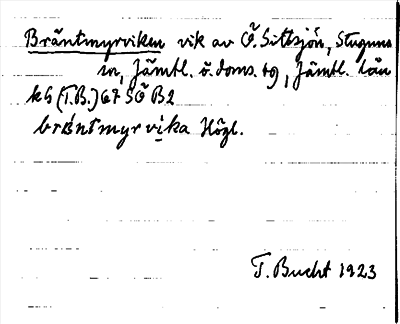 Bräntmyrviken vik av Ö. Sittsjön, Stuguns
sn, Jämtl. ö. doms. tg, Jämtl. län
kb (T.B.) 67 SÖ B2
bräntmyrvika Högl.
T. Bucht 1923